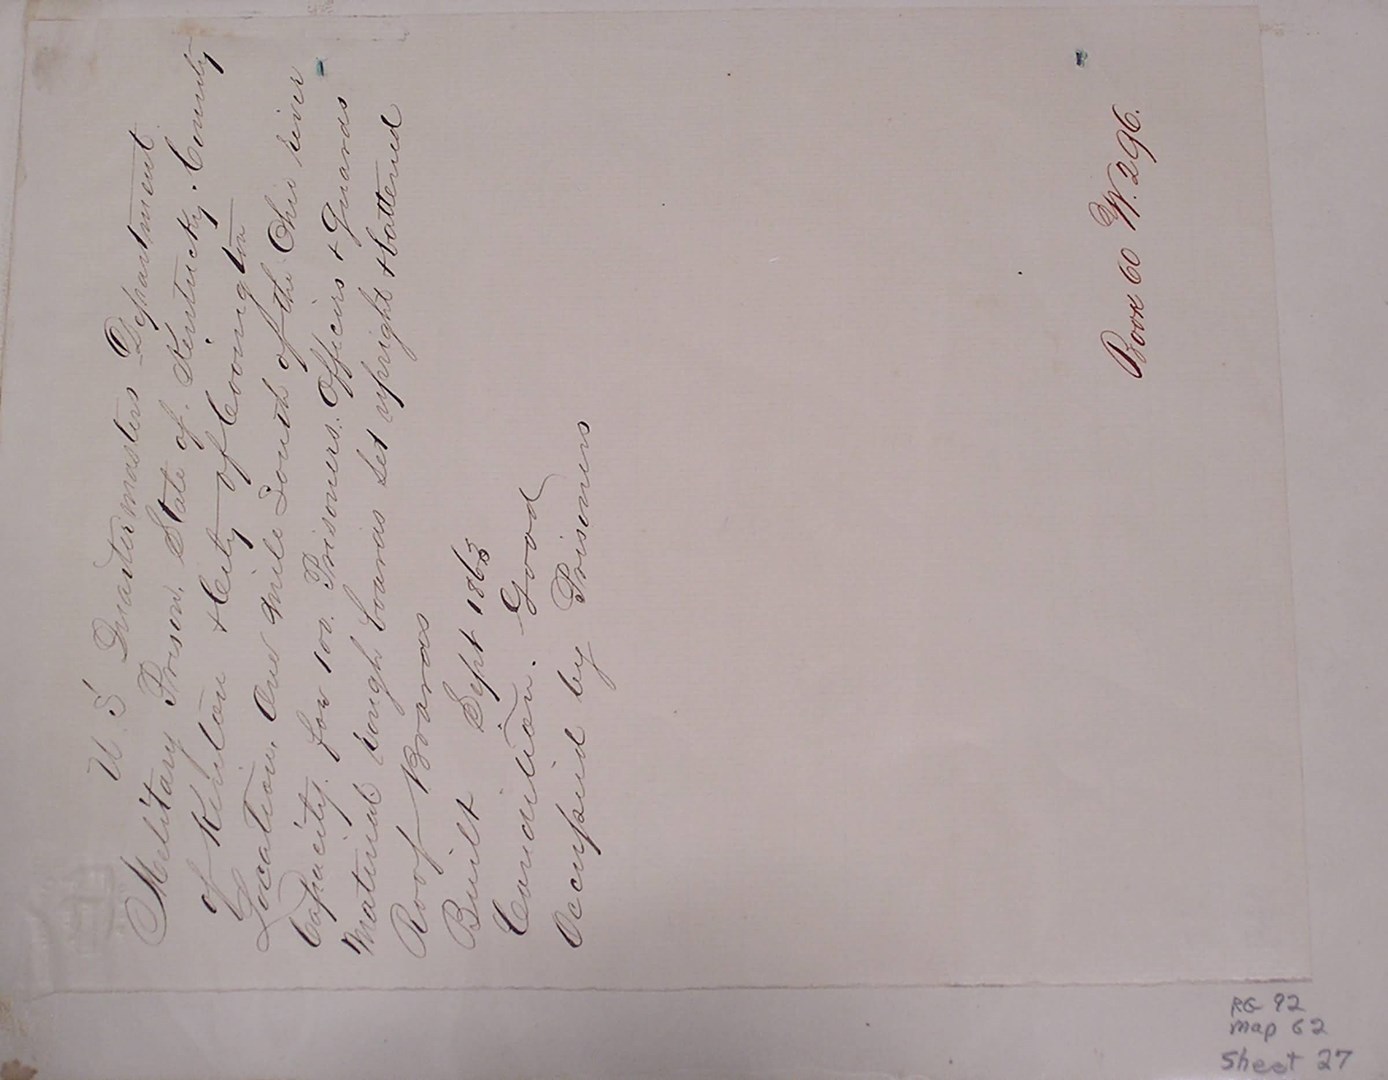 U. S Quartermasters Department
Military Prison, State of. Kentucky. County
of Kenton & City of Covington
Location. One mile South of the Ohio river
Capacity. for 100. Prisoners. Officers & Guards
Material rough boards set upright & battened
Roof Boards
Built Sept 1863
Condition. Good
Occupied by Prisoners
Book 60 W. 296.
RG 92
map 62
Sheet 27